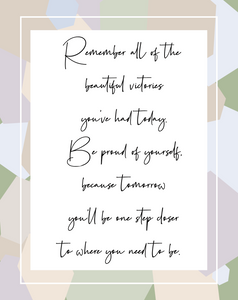 Remember all of the
beautiful victories
you've had today.
Be proud of yourself,
because tomorrow
you'll be one step closer
to where you need to be.